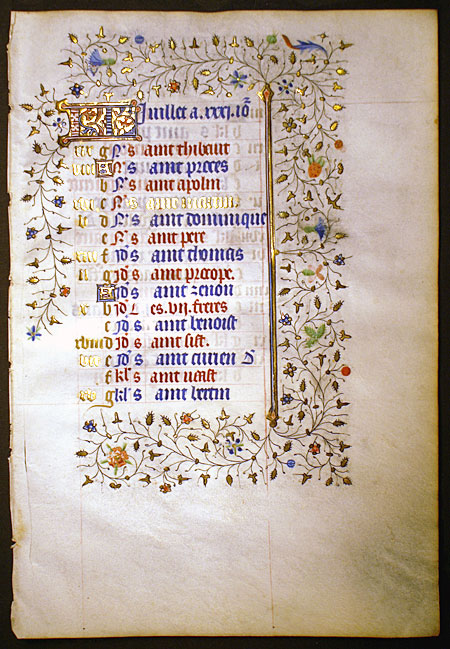 KL Juillet a. xxxi. iō
xix g N s aint thibaut
viii A N s aint preces
b N s aint apolin
c N s aint
v d N s aint dominique
e N s aint pere
xiii f id s aint thomas
ii g id s aint procope.
A id s aint zenon
x b id L es .vii. freres
c id s aint benoist
xviii d id s aint sixt.
vii e id s aint turien D
f kl s aint vaast
xv g kl s aint bertin